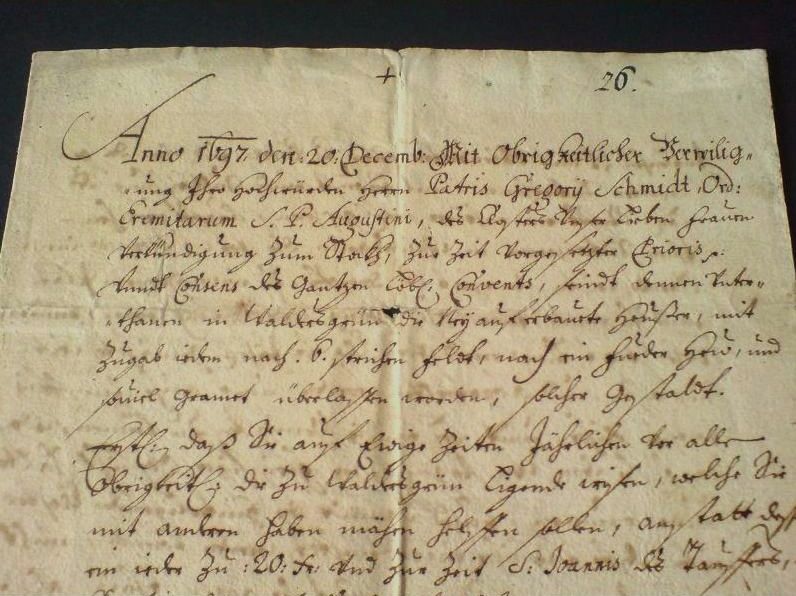 + 26.
Anno 1697 den: 20: Decemb: Mit Obrigkeitlicher Verwilig„
„ung Ihro Hochwürden Herrn Patris Gregorÿ Schmidt, Ord:
Eremitarum S. P. Augustini, des Closters Unser Lieben Frauen
Verkündigung zum Stockh, zur Zeit vorgesetzter Prioris
Undt Consens des Gantzen Löbl: Convents, seindt denen Unter„
„thanen in Waldesgrün die Neÿ auferbaurte Heußer, mit
Zugab iedem nach . 6. strichen Feldt, noch ein Fueder Heÿ, und
souiel Gramet überlassen worden, solcher Gestaldt.
daß Sie auf Ewige Zeiten Jährlichen der alle
Obrigkeitl: die zu Waldesgrün ligende wisen, welche Sie
mit anderen haben mähen helffen sollen, anstatt
ein ieder zu :20: Kr: und zur Zeit S: Joannis des Tauffers,